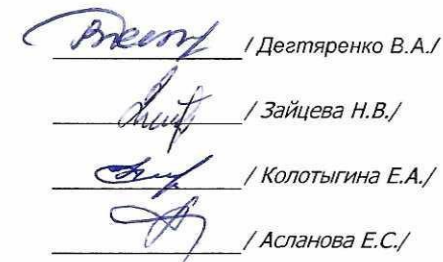 / Дегтяренко В.А./
/ Зайцева Н.В./
/ Колотыгина Е.А./
/ Асланова Е.С./